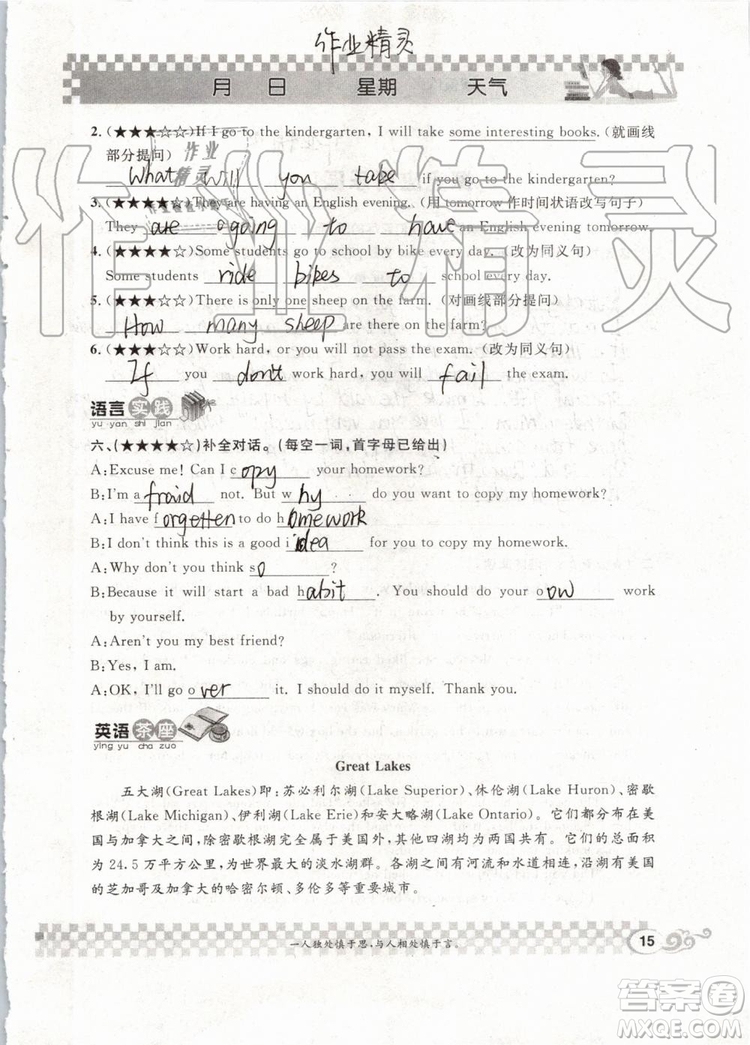 作业精灵
月 日 星期 天气
2.(★★★☆☆)If I go to the kindergarten, I will take some interesting books.(就画线
部分提问)
What will you take if you go to the kindergarten?
3.(★★★☆☆)They are having an English evening.(用 tomorrow 作时间状语改写句子)
They are going to have an English evening tomorrow.
4.(★★★☆☆)Some students go to school by bike every day.(改为同义句)
Some students ride bikes to school every day.
5.(★★★☆☆)There is only one sheep on the farm.(对画线部分提问)
How many sheep are there on the farm?
6.(★★★☆☆)Work hard, or you will not pass the exam.(改为同义句)
If you don't work hard, you will fail the exam.
语言实践
yu yan shi jian
六、(★★★★☆)补全对话。(每空一词,首字母已给出)
A:Excuse me! Can I copy your homework?
B:I'm afraid not. But why do you want to copy my homework?
A:I have forgetten to do homework
B:I don't think this is a good idea for you to copy my homework.
A:Why don't you think so ?
B:Because it will start a bad habit. You should do your oow work
by yourself.
A:Aren't you my best friend?
B:Yes, I am.
A:OK, I'll go over it. I should do it myself. Thank you.
英语茶座
ying yu cha zuo
Great Lakes
五大湖(Great Lakes)即:苏必利尔湖(Lake Superior)、休伦湖(Lake Huron)、密歇
根湖(Lake Michigan)、伊利湖(Lake Erie)和安大略湖(Lake Ontario)。它们都分布在美
国与加拿大之间,除密歇根湖完全属于美国外,其他四湖均为两国共有。它们的总面积
为 24.5 万平方公里,为世界最大的淡水湖群。各湖之间有河流和水道相连,沿湖有美国
的芝加哥及加拿大的哈密尔顿、多伦多等重要城市。
一人独处慎于思,与人相处慎于言。
15
作业精灵
作业
精灵
答案圈
MXQE.COM